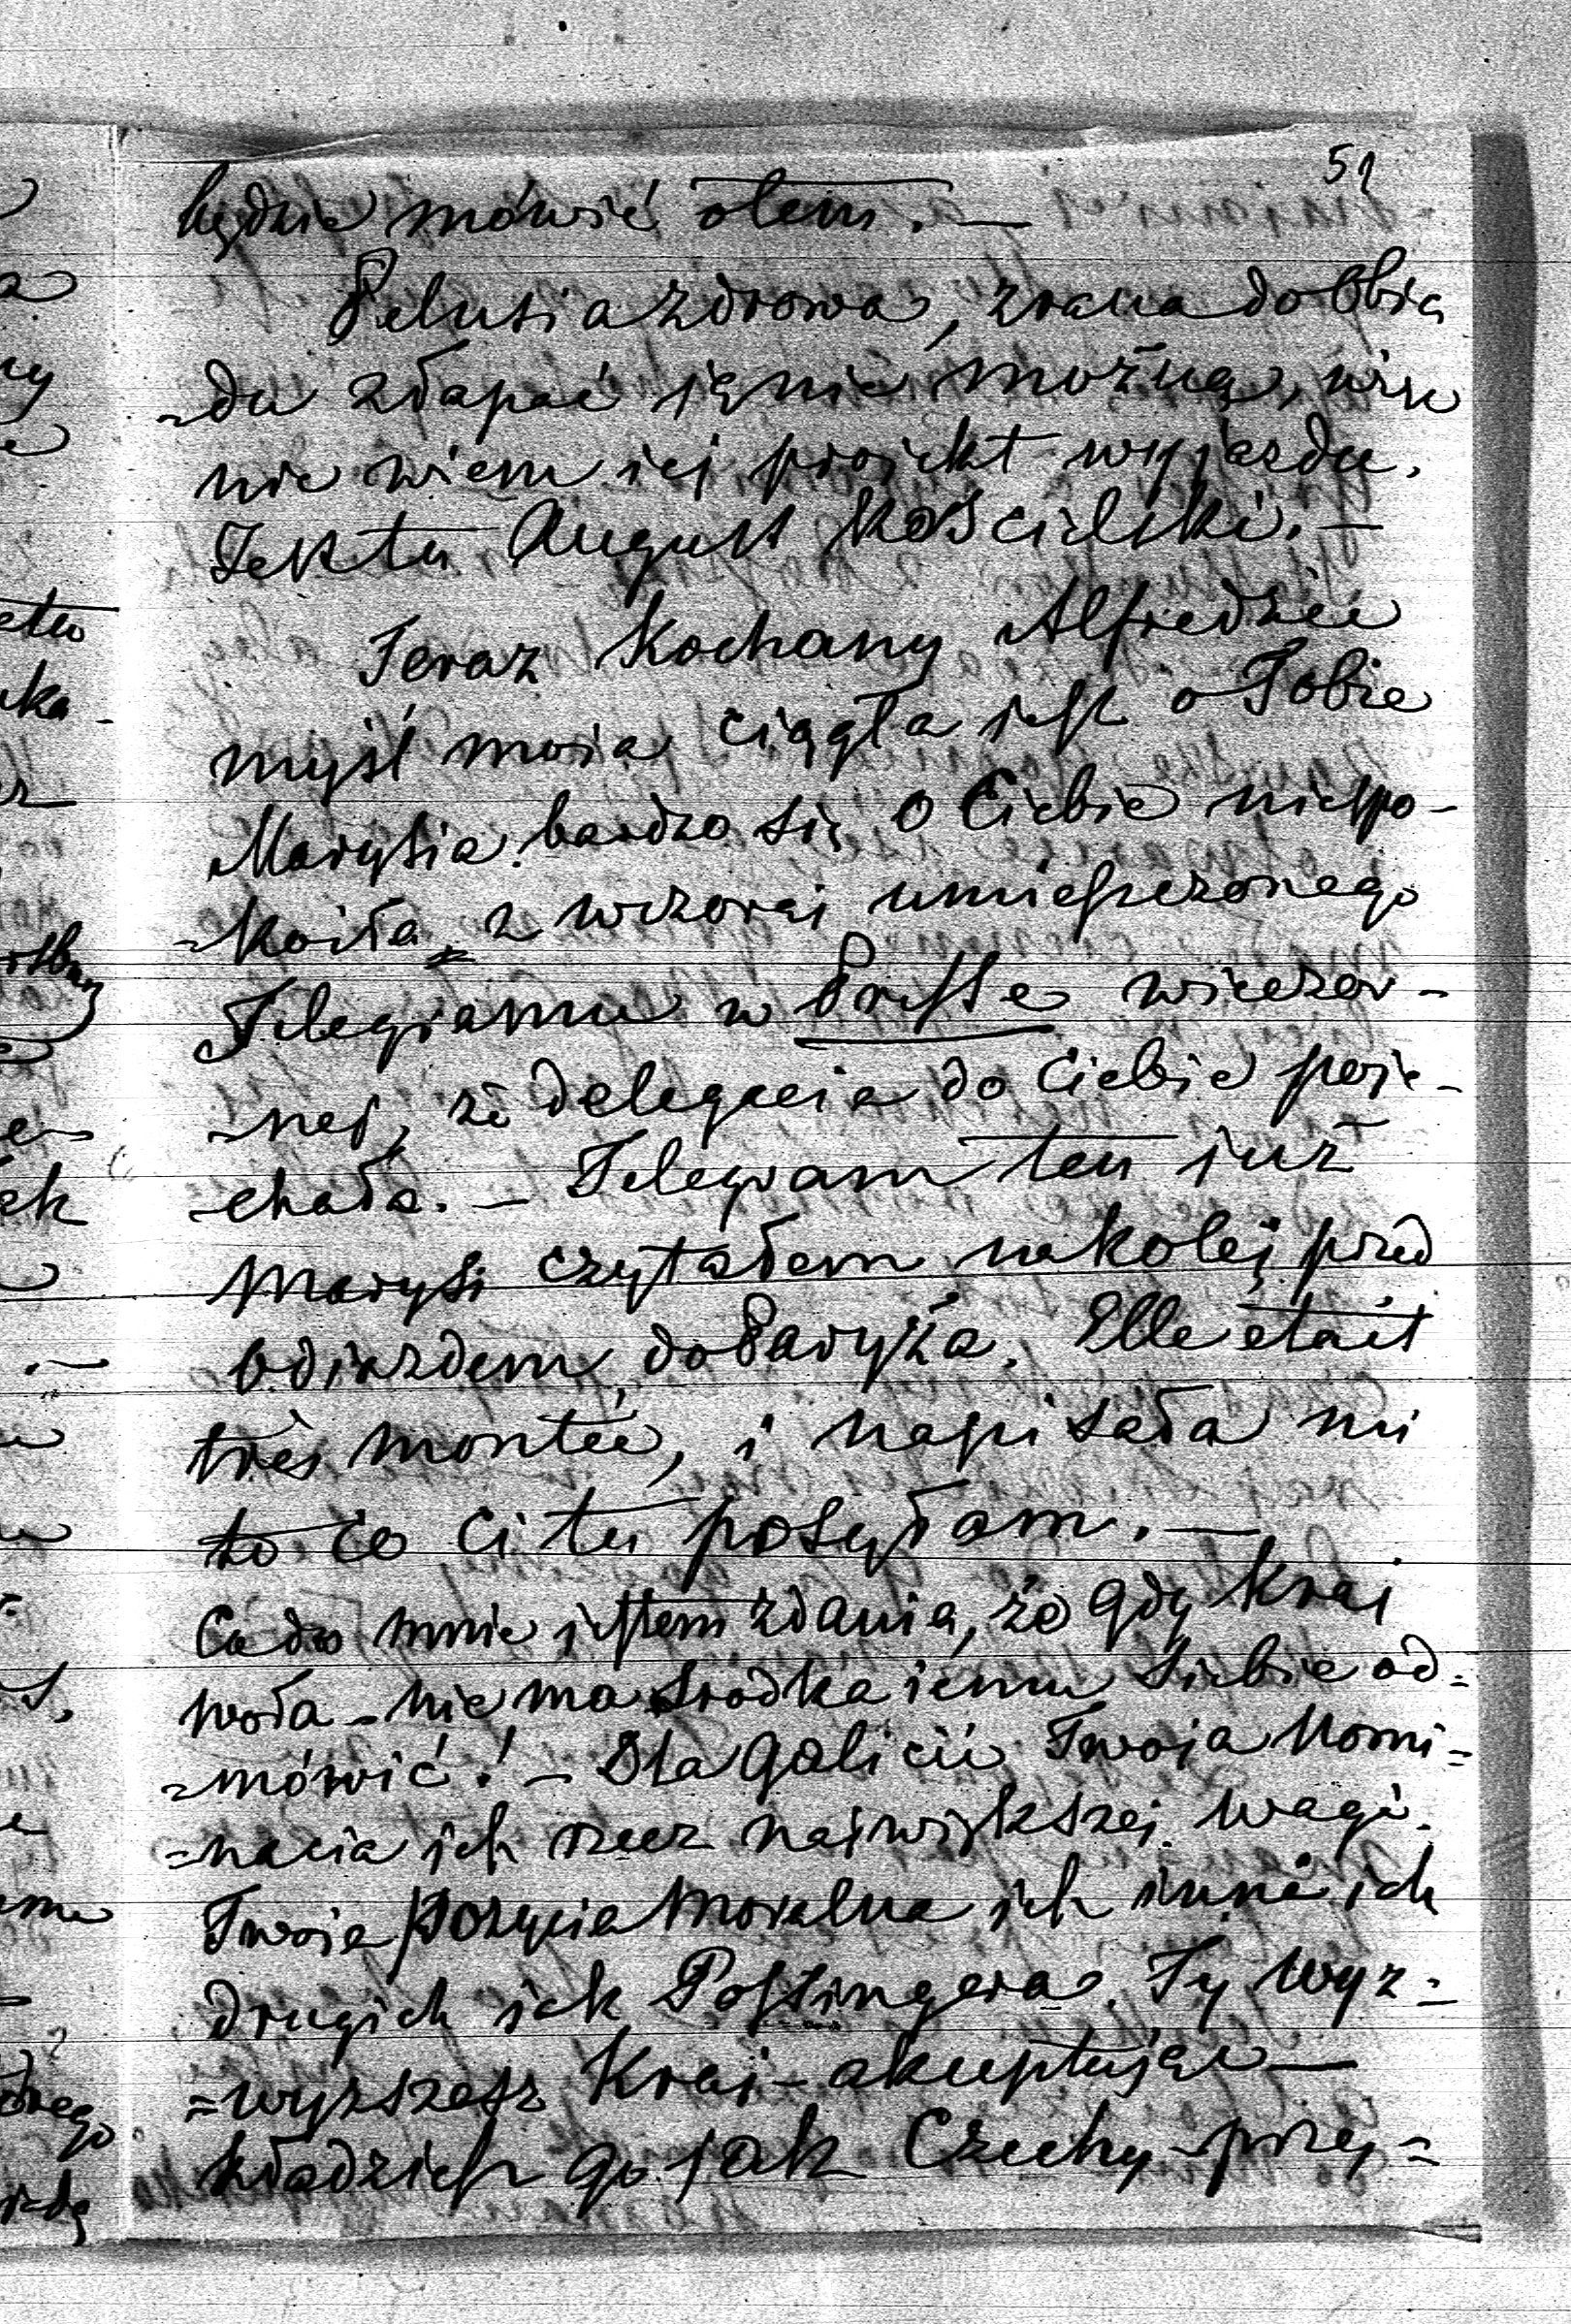 51
będzie mówić o tem. —
Pelusia zdrowa, zrana do Obia
-du złapać ją nie można, więc
nie wiem jej projekt wyjazdu.
Jest tu August Kościelski. —
Teraz Kochany Alfredzie
myśl moja ciągła jest o Tobie
Marysia bardzo się o Ciebie niespo-
-koiła z wczoraj umieszczonego
Telegramu w Presse wieczor-
-nej, że delegacia do Ciebie poje-
-chała. — Telegram ten już
Marysi czytałem na kolej przed
odjazdem do Paryża. Elle était
très montée, i napisała mi
to co Ci tu posyłam. —
Co do mnie jestem zdania, że gdy Kraj
woła - nie ma środka jemu siebie od=
=mówić! — Dla Galicii Twoja Nomi=
=nacia jest rzecz największej wagi.
Twoja pozycia moralna jest inna jak
drugich jak Possingera. Ty wyz=
=wyższasz Kraj - akceptując —
kładziesz go jak Czechy - przy=